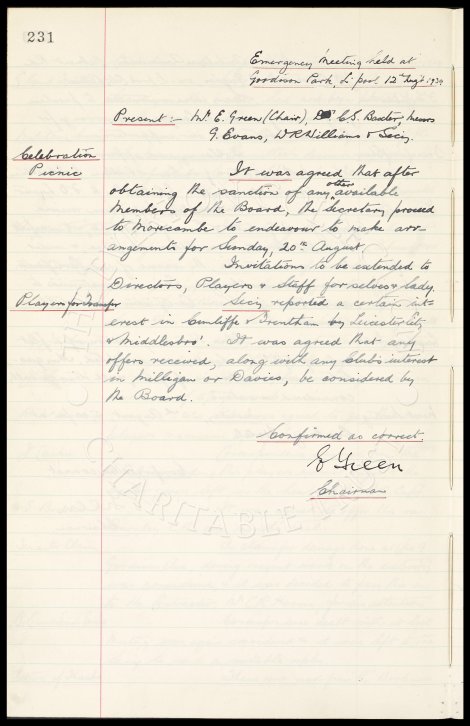 231
Emergency Meeting held at
Goodison Park, L'pool 12th Aug't 1939
Present:- Mr E. Green (Chair), C. S. Baxter, Messrs
G. Evans, W R Williams & Secy.
Celebration
Picnic
It was agreed that after
obtaining the sanction of any other available
Members of the Board, the Secretary proceed
to Morecambe to endeavour to make arr-
angements for Sunday, 20th August.
Invitations to be extended to
Directors, Players & Staff for selves & lady.
Players for Transfer
Secy reported a certain int-
erest in Cunliffe & Trentham by Leicester City
& Middlesbro'. It was agreed that any
offers received, along with any Clubs interest
in Milligan or Davies, be considered by
the Board.
Confirmed as correct
E Green
Chairman
CHARITABLE